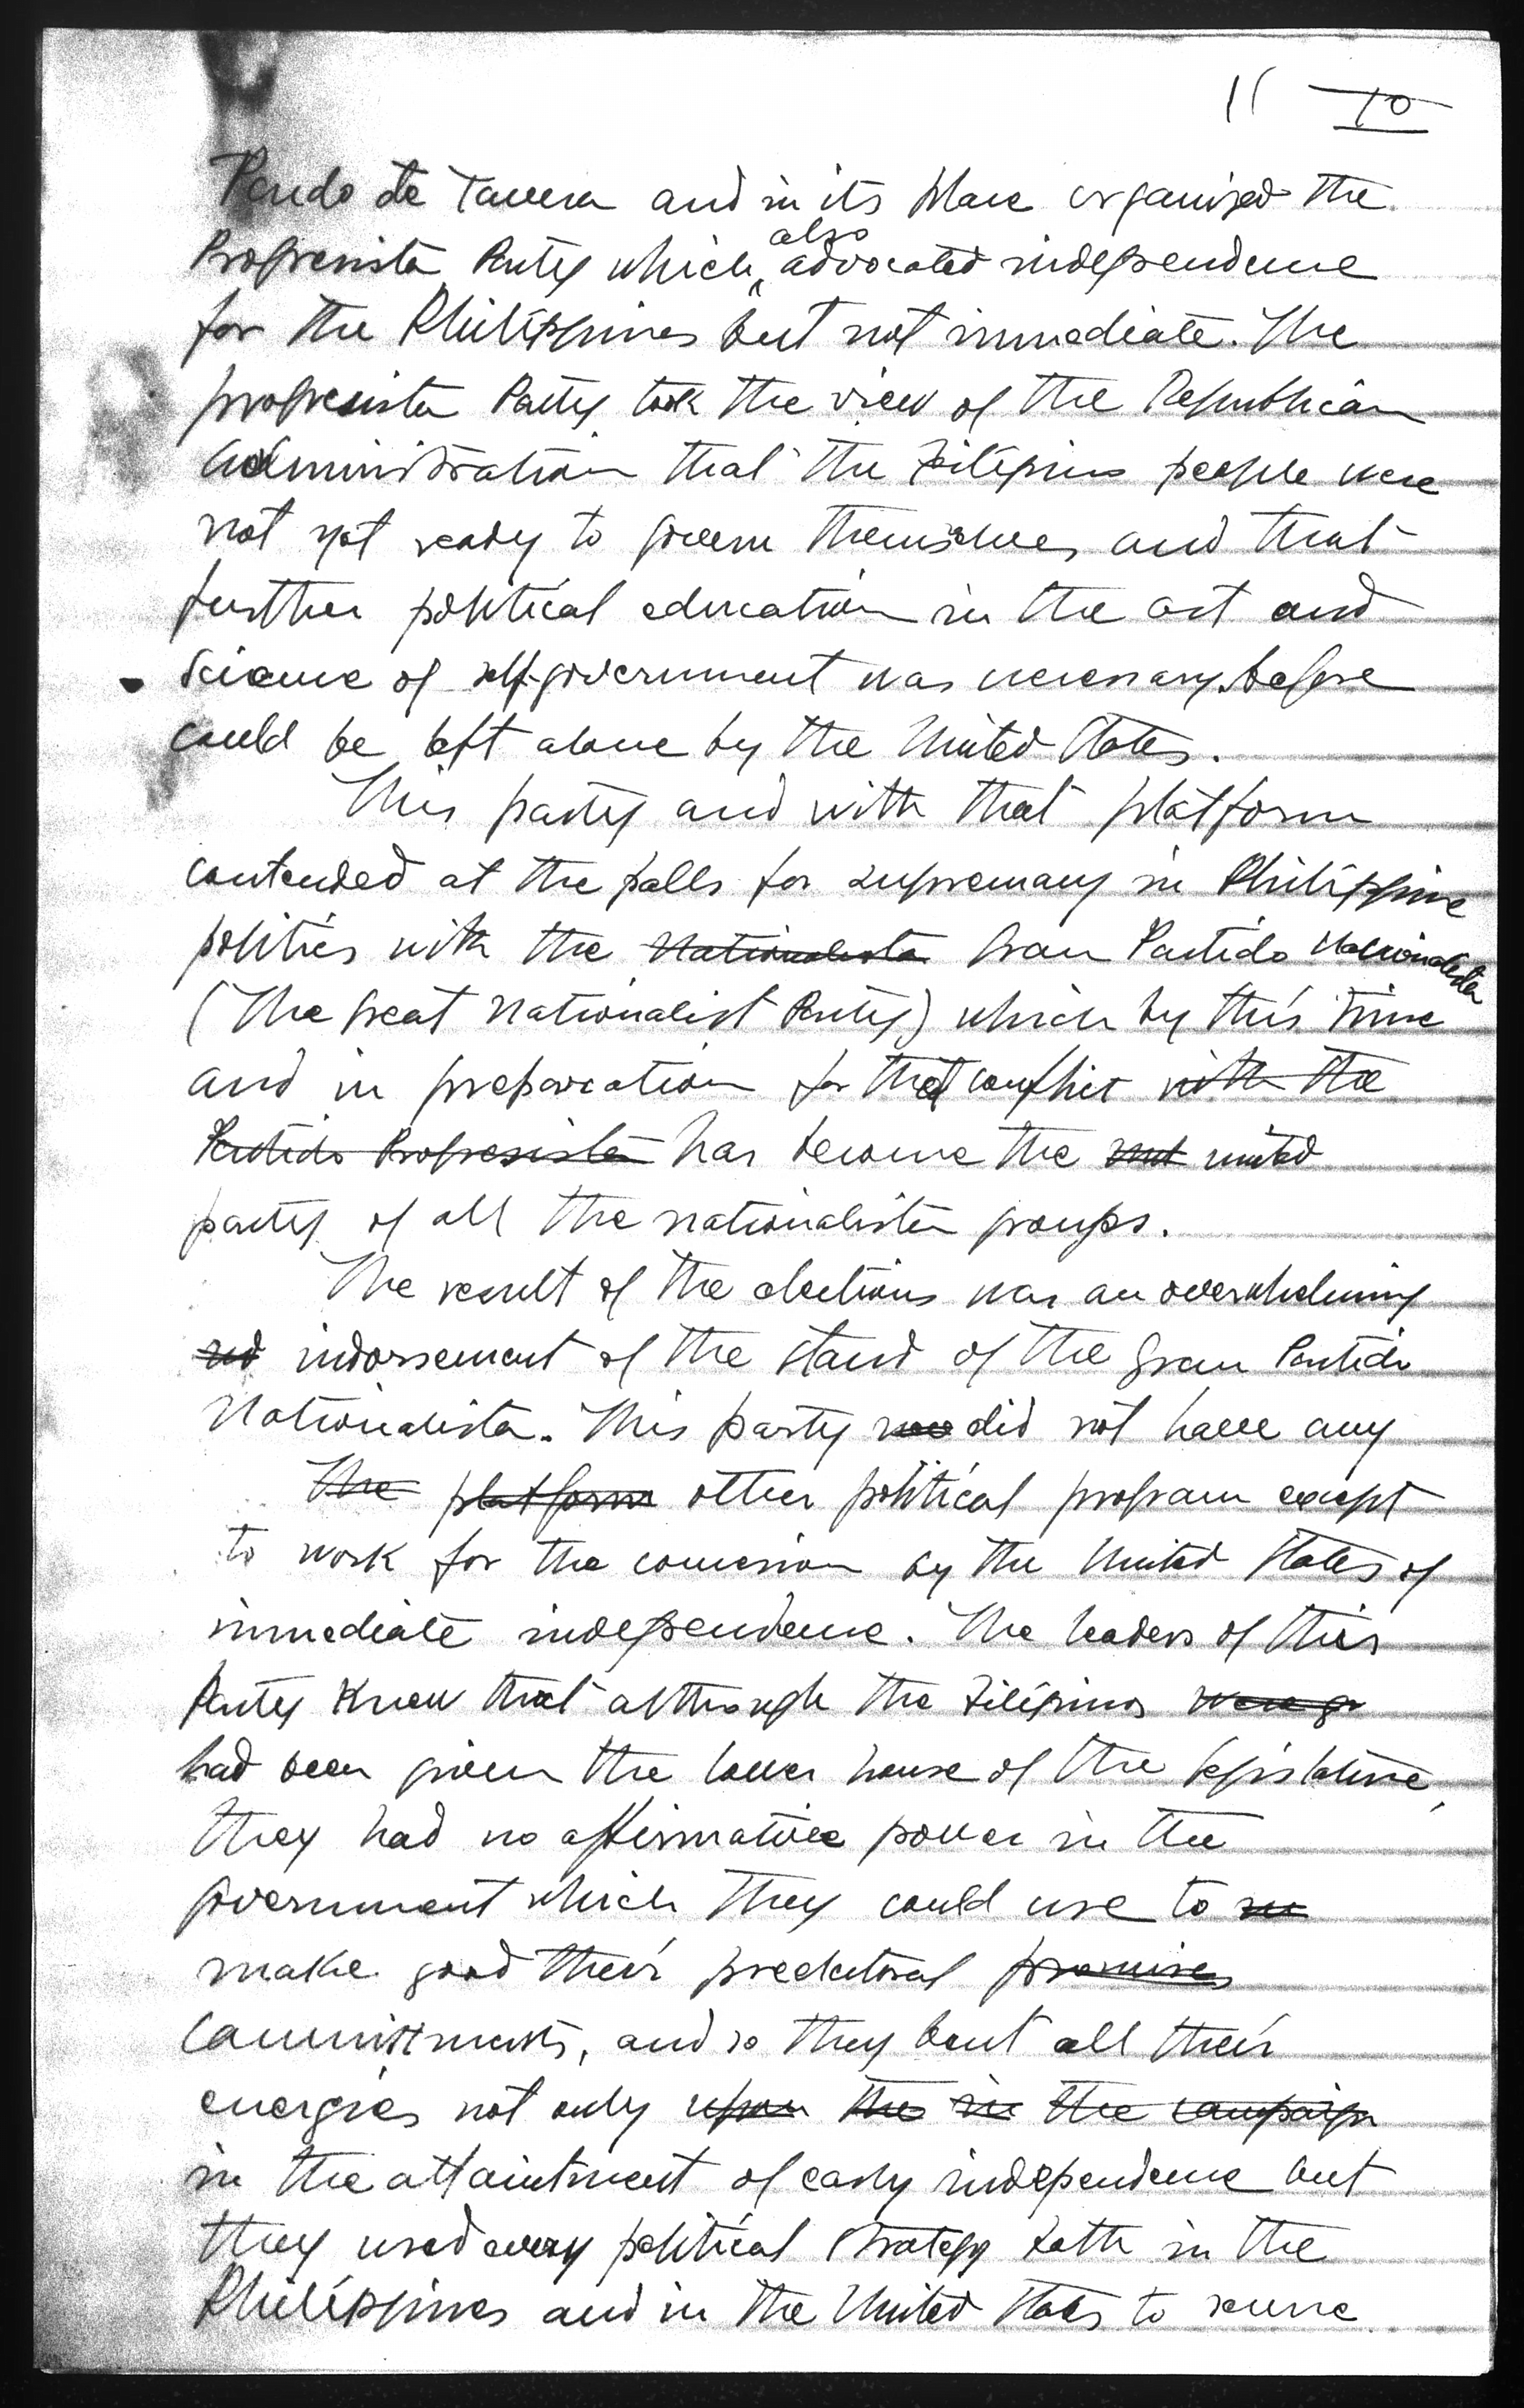 11 10
Pardo de Tavera and in its place organized the
also
Progresista Party which advocated independence
for the Philippines but not immediate. The
progresista Party took the view of the Republican
administration that the Filipino people were
not yet ready to govern themselves and that
further political education in the art and
science of self-government was necessary before
could be left alone by the United States.
This party and with that platform
contended at the polls for supremacy in Philippine
politics with the Nationalista Gran Partido Nacionalista
(The Great Nationalist Party) which by this time
and in preparation for that conflict with the
Partido Progresista has become the unit united
party of all the nationalista groups.
The result of the elections was an overwhelming
indorsement of the stand of the Gran Partido
Nationalista. This party was did not have any
The platform other political program except
to work for the concession by the United States of
immediate independence. The leaders of this
Party knew that although the Filipinos were gi
had been given the lower house of the legislature,
they had no affirmative power in the
government which they could use to
make good their preelectoral promises
committments, and so they bent all their
energies not only upon the in the campaign
in the attaintment of early independence but
they used every political strategy both in the
Philippines and in the United States to secure